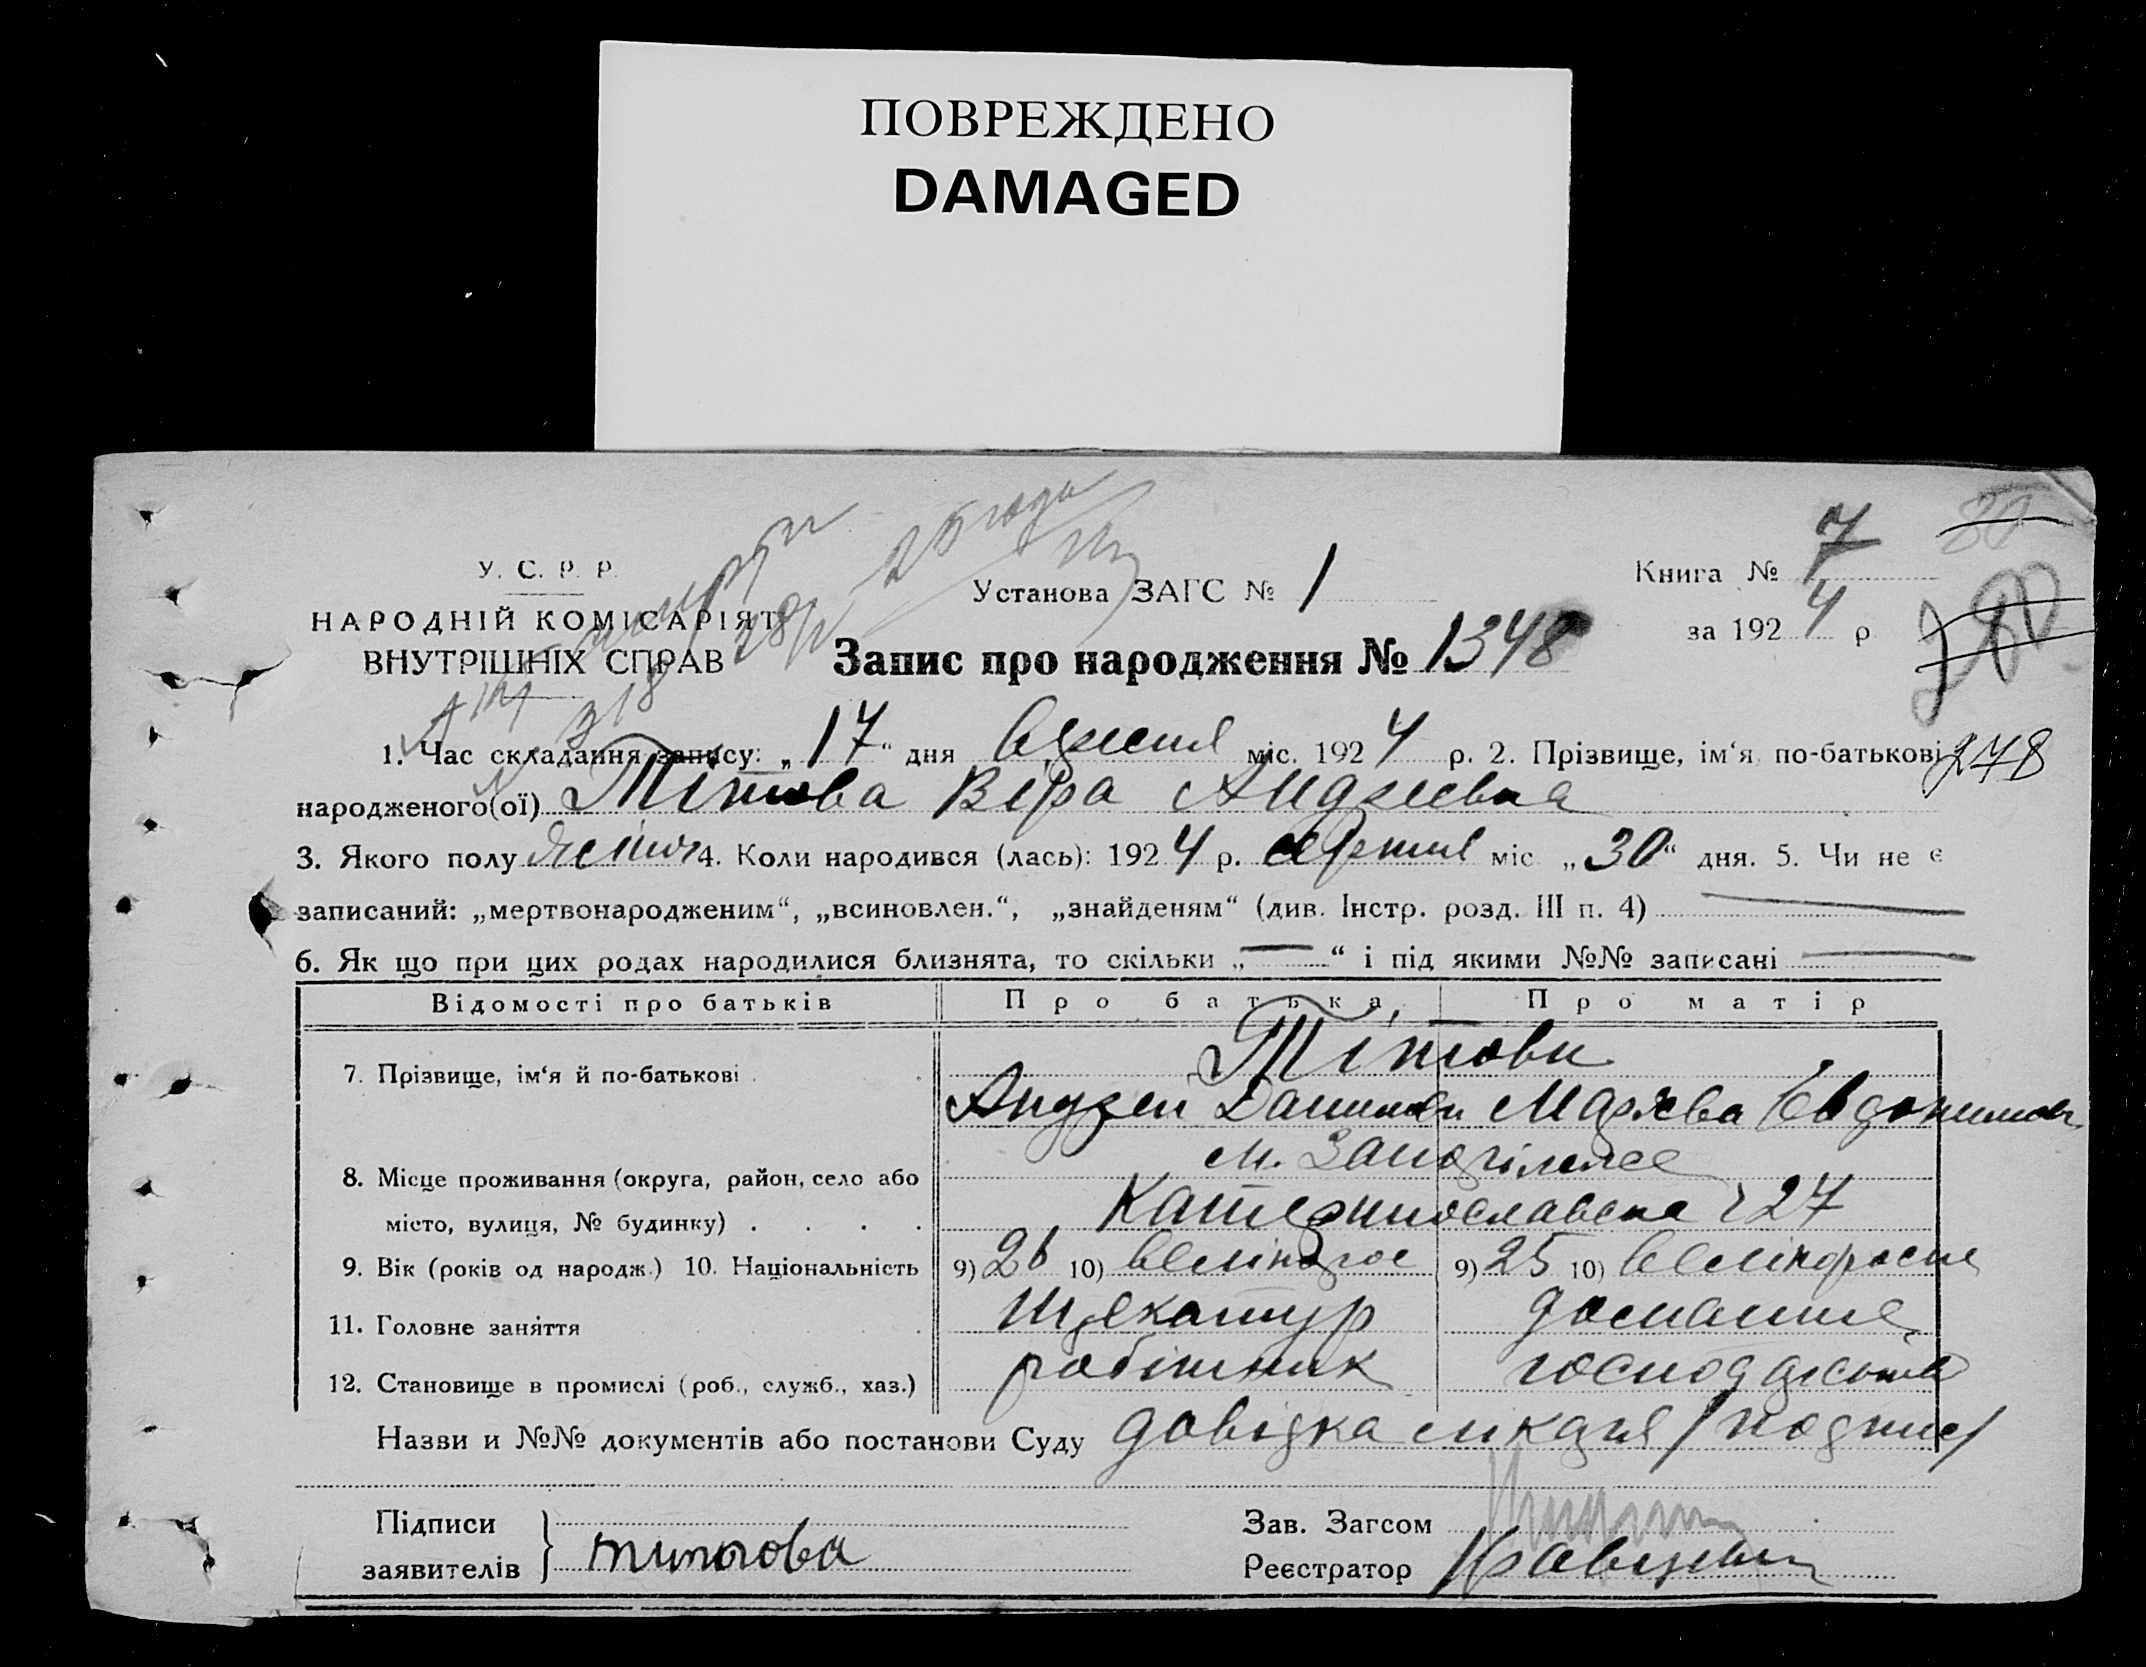 ПОВРЕЖДЕНО
DAMAGED
У. С. Р. Р.
НАРОДНІЙ КОМІСАРІЯТ
ВНУТРІШНІХ СПРАВ
Установа ЗАГС № 1
Книга № 7
за 1924 р
80
280
278
Запис про народження № 1348
1. Час складання запису: „17“ дня вересня міс. 1924 р. 2. Прізвище, ім‘я, по-батькові
народженого(ої) Тітова Віра Андреевна
3. Якого полу жіноч 4. Коли народився (лась): 1924 р. серпня міс „30“ дня. 5. Чи не є
записаний: „мертвонародженим“, „всиновлен.“, „знайденям“ (див. Інстр. розд. III п. 4)
6. Як що при цих родах народилися близнята, то скільки „—“ і під якими №№ записані —
Відомості про батьків Про батька, Про матір
7. Прізвище, ім‘я й по-батькові Тітови
Андреи Данилов
м. Запоріжжє
8. Місце проживання (округа, район, село або
місто, вулиця, № будинку) Катеринославска 27
9. Вік (років од народж.) 10. Національність 9) 26 10) великорос 9) 25 10) великоросіа
11. Головне заняття Щекатур домашнє
12. Становище в промислі (роб., служб., хаз.) робітник
Назви и №№ документів або постанови Суду довідка лікаря /подпис/
Підписи
заявителів
титова
Зав. Загсом
Реєстратор